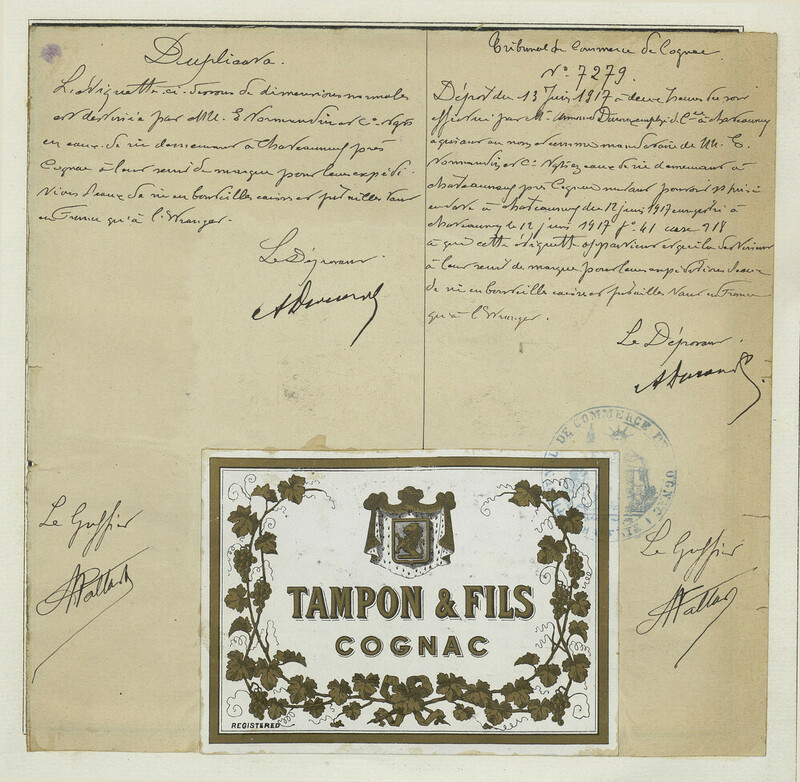 Duplicata.
L'étiquette ci-dessous de dimensions normales
est destinée par MM. E. Normandin et Cie Ngts
en eaux-de-vie demeurant à Chateauneuf près
Cognac à leur servir de marque pour leurs expédi-
tions d'eaux-de-vie en bouteilles caisses et futailles tant
en France qu'à l'Etranger.
Le Déposant
Le Greffier
Tribunal de Commerce de Cognac
No. 7279.
Dépôt du 13 Juin 1917 à deux heures du soir
effectué par Mr Durand employé de Cce à Chateauneuf
agissant au nom et comme mandataire de MM. E.
Normandin et Cie Ngts en eaux-de-vie demeurant à
Chateauneuf près Cognac suivant pouvoir ss privé
en date à Chateauneuf du 12 juin 1917 enregistré à
Chateauneuf le 12 juin 1917 fo. 41 case 218
à qui cette étiquette appartient et qui la destinent
à leur servir de marque pour leurs expéditions d'eaux-
de-vie en bouteilles caisses et futailles tant en France
qu'à l'Etranger.
Le Déposant
A Durand
TRIBUNAL DE COMMERCE DE COGNAC
Le Greffier
TAMPON & FILS
COGNAC
REGISTERED